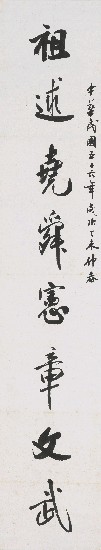 中華民國五十六年歲次丁未仲春
祖述堯舜憲章文武